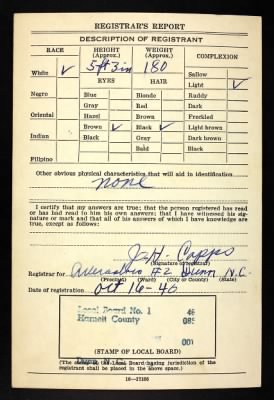 REGISTRAR'S REPORT
DESCRIPTION OF REGISTRANT
RACE HEIGHT (Approx.) WEIGHT (Approx.) COMPLEXION
5ft 3in 180
White ✓ EYES HAIR Sallow
Light ✓
Negro Blue Blonde Ruddy
Gray Red Dark
Oriental Hazel Brown Freckled
Brown ✓ Black ✓ Light brown
Indian Black Gray Dark brown
Bald Black
Filipino
Other obvious physical characteristics that will aid in identification
none
I certify that my answers are true; that the person registered has read
or has had read to him his own answers; that I have witnessed his
signature or mark and that all of his answers of which I have knowledge are
true, except as follows:
J. H. Capps
(Signature of registrar)
Registrar for Averasboro #2 Dunn N.C.
(Precinct) (Ward) (City or County) (State)
Date of registration Oct 16-40
Local Board No. 1 46
Harnett County 085
001
(STAMP OF LOCAL BOARD)
(The stamp of the Local Board having jurisdiction of the
registrant shall be placed in the above space.)